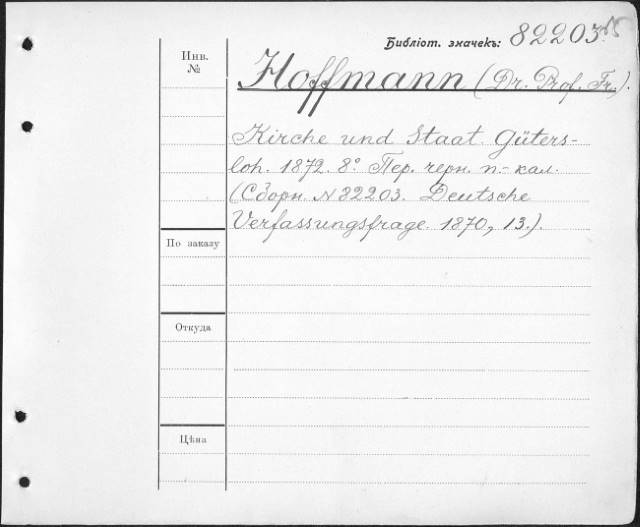 Библіот. значекъ: 82203.
Инв.
№
Hoffmann (Dr. Prof. Fr.).
Kirche und Staat. Güters-
loh. 1872. 8°. Пер. черн. п.-кал.
(Сборн. № 82203. Deutsche
Verfassungsfrage. 1870, 13.).
По заказу
Откуда
Цѣна